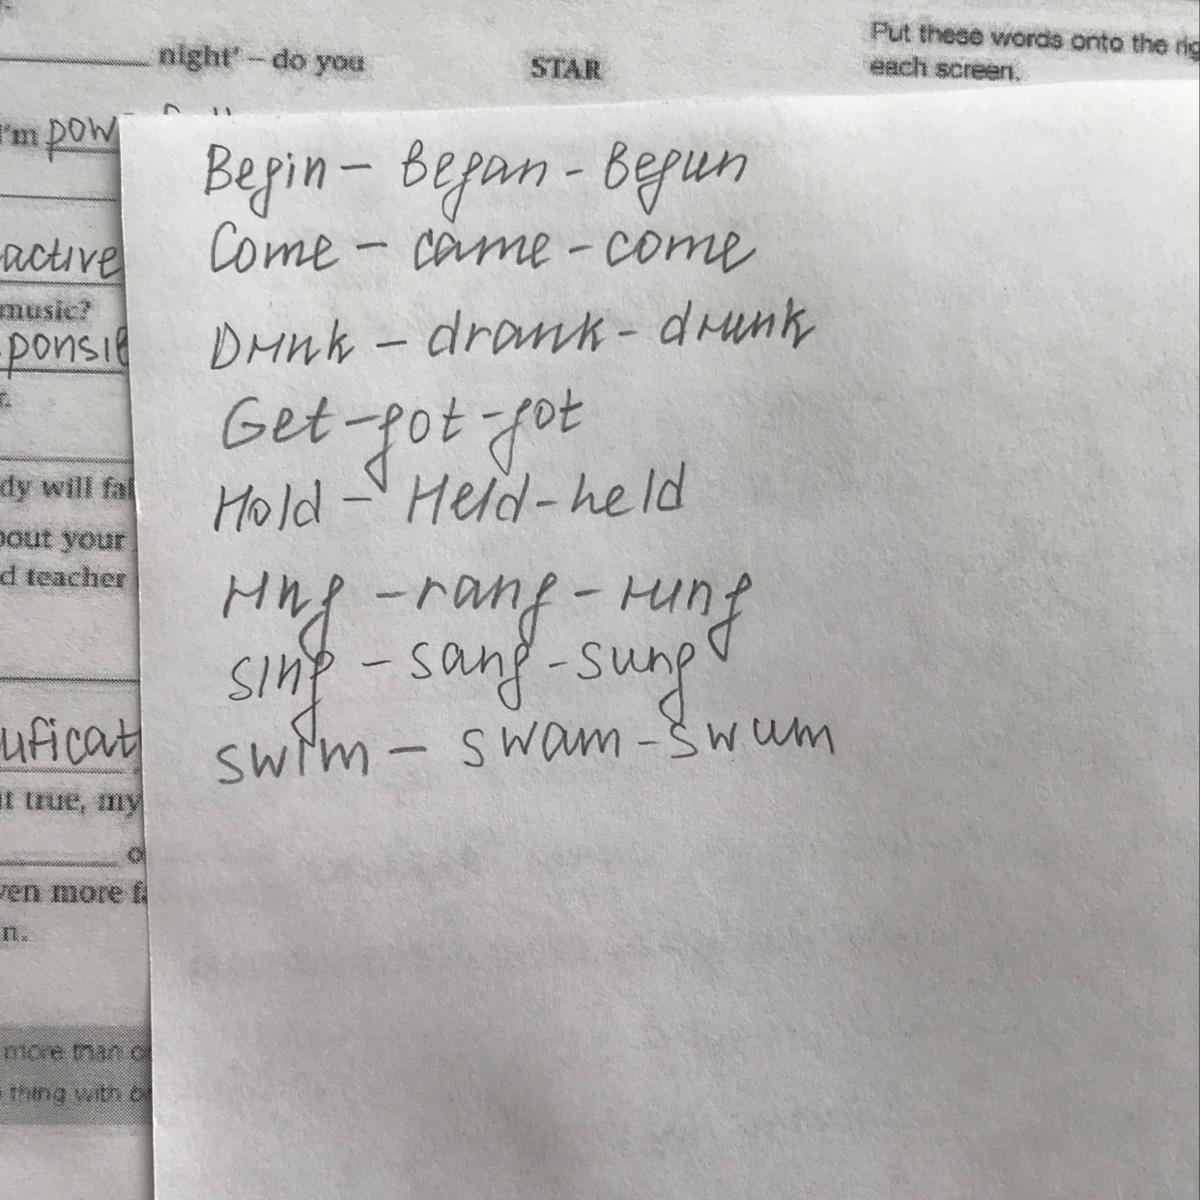 night' – do you
STAR
Put these words onto the
each screen.
I'm pow
active
music?
ponsib
r.
dy will fal
bout your
d teacher
uficat
t true, my
o
ven more fa
n.
more than o
thing with
Begin – Began – Begun
Come – came – come
Drink – drank – drunk
Get – got – got
Hold – Held – held
ring – rang – rung
sing – sang – sung
swim – swam – swum